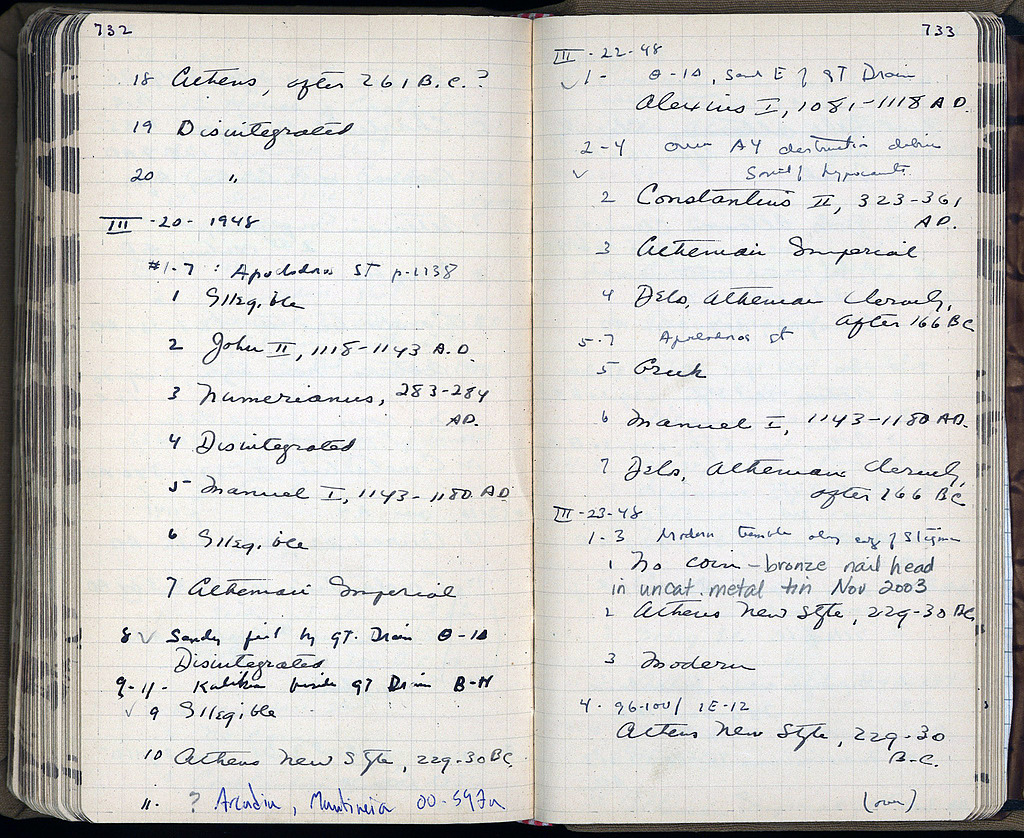 732
18 Athens, after 261 B.C.?
19 Disintegrated
20 "
III - 20 - 1948
#1-7 : Apolodoros ST p.1138
1 Illegible
2 John II, 1118-1143 A.D.
3 Numerianus, 283-284
AD.
4 Disintegrated
5 Manuel I, 1143-1180 AD
6 Illegible
7 Athenian Imperial
8 ✓ Sandy fill by GT. Drain Θ-1Δ
Disintegrated
9-11- beside GT Drain B-H
✓ 9 Illegible
10 Athens New Style, 229-30 BC.
11. ? Arcadia, Mantineia 00-597a
733
III - 22 - 48
✓ 1- Θ-1Δ, Sand E of GT Drain
Alexius I, 1081-1118 A.D.
2-4 over A4 destruction debris
✓ South of hypocausts
2 Constantius II, 323-361
AD.
3 Athenian Imperial
4 Delos, Athenian Cleruchy,
after 166 BC
5-7 Apolodoros st
5 Greek
6 Manuel I, 1143-1180 AD.
7 Delos, Athenian Cleruchy,
after 166 BC
III - 23 - 48
1-3 Modern along edge of
1 No coin - bronze nail head
in uncat. metal tin Nov 2003
2 Athens New Style, 229-30 BC
3 Modern
4. 96-100/ ΙΕ-12
Athens New Style, 229-30
B.C.
(over)